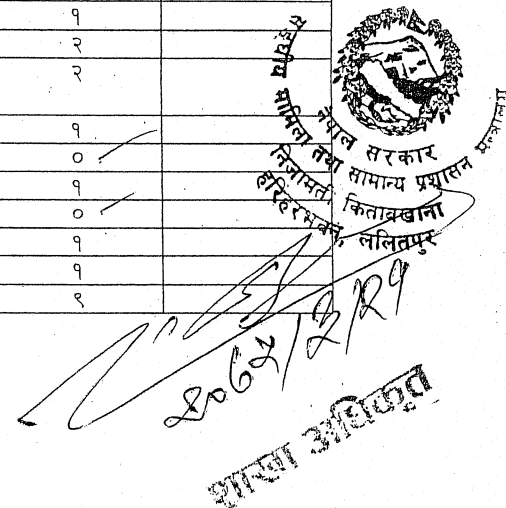 १
२
२
१
०
१
०
१
१
९
नेपाल सरकार
सङ्घीय मामिला तथा सामान्य प्रशासन मन्त्रालय
निजामती कितावखाना
हरिहरभवन, ललितपुर
२०७५/३/२१
शाखा अधिकृत